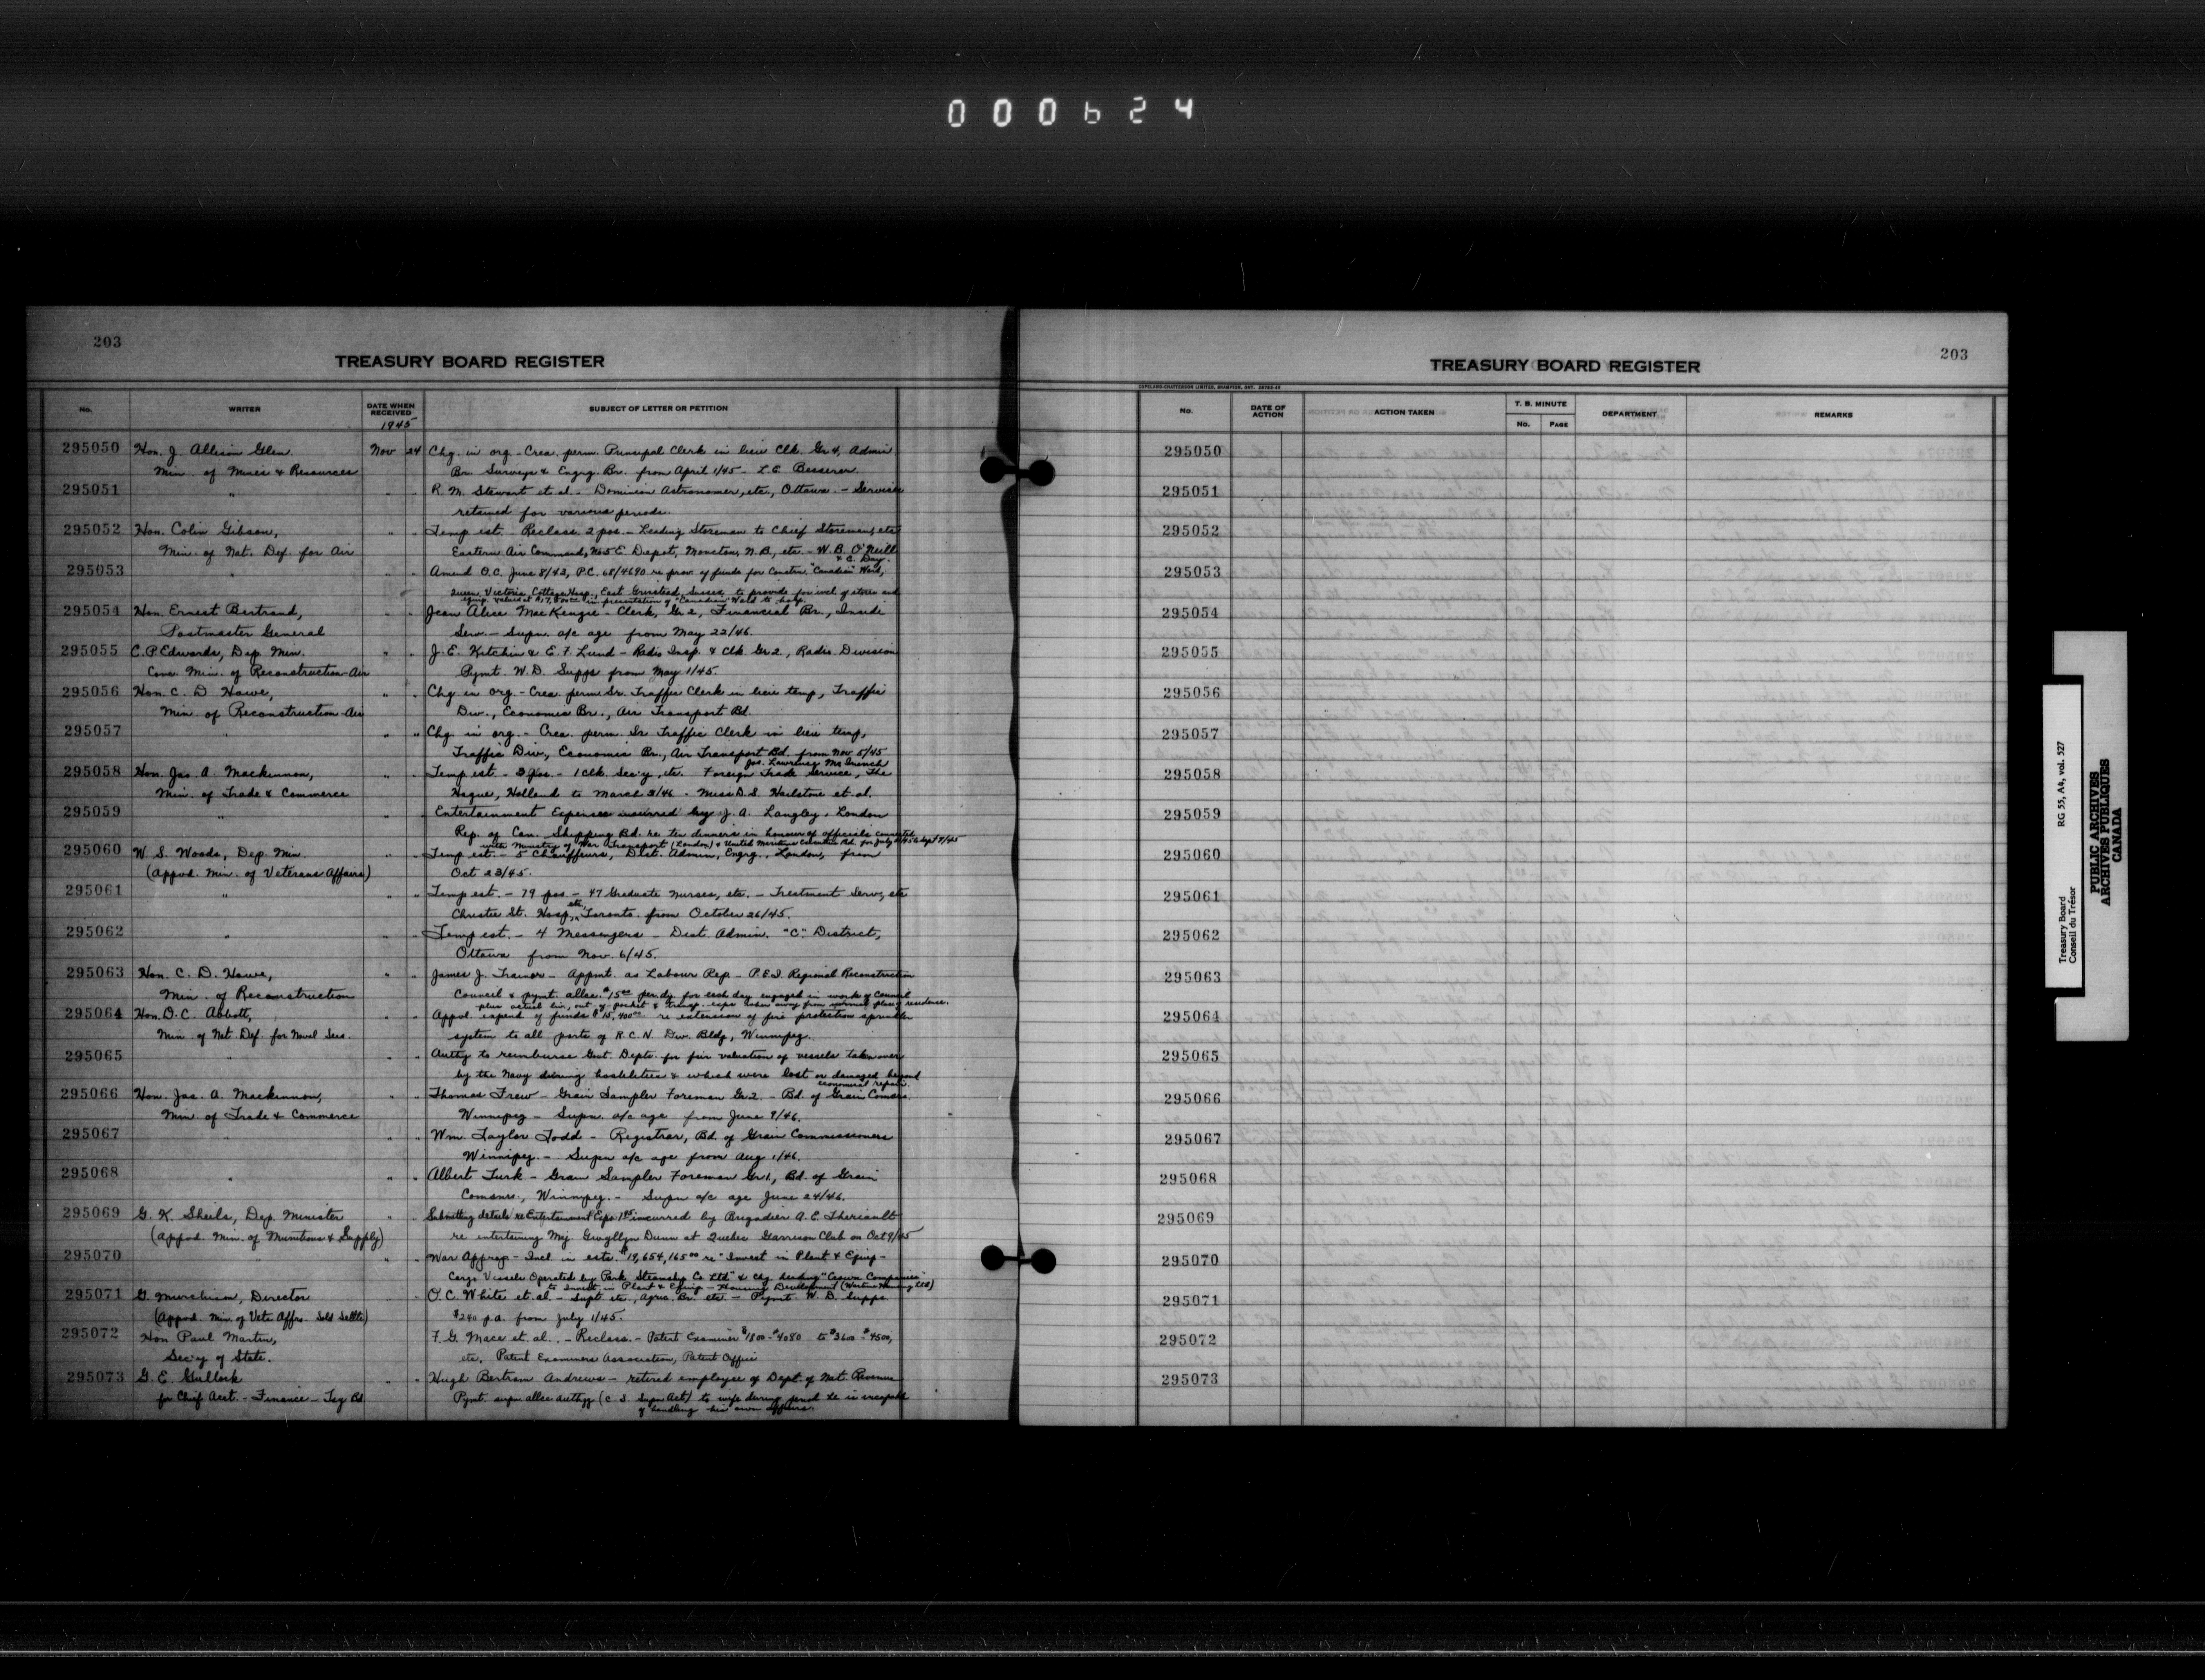 000624
203
TREASURY BOARD REGISTER
No.
WRITER
DATE WHEN RECEIVED
1945
SUBJECT OF LETTER OR PETITION
295050 Hon. J. Allison Glen Nov 24 Chg. in org - Crea. perm. Principal Clerk in lieu Clk. Gr 4, Admin
Min. of Mines & Resources Br. Surveys & Engrg. Br. from April 1/45 - L.E. Besserer.
295051 " " " R. M. Stewart et al. - Dominion Astronomer, etc., Ottawa. - Services
retained for various periods.
295052 Hon. Colin Gibson, " " Temp est. - Reclass. 2 pos. - Leading Storeman to Chief Storeman, etc
Min. of Nat. Def. for Air Eastern Air Command, No 5 E. Depot, Moncton, N.B., etc - W. B. O'Neill
& C. Day.
295053 " " " Amend O.C. June 8/43, P.C. 68/4690 re prov. of funds for Constrn. "Canadian" Ward,
Queen Victoria Cottage Hosp., East Grinstead, Sussex to provide for incl of stores and
equip. valued at in presentation of "Canadian" Ward to hosp.
295054 Hon. Ernest Bertrand, " " Jean Alice MacKenzie - Clerk, Gr 2, Financial Br., Inside
Postmaster General Serv. - Supn. a/c age from May 22/46.
295055 C. P. Edwards, Dep. Min. " " J. E. Kitchin & E. F. Lund - Radio Insp. & Clk. Gr 2, Radio Division
Min. of Reconstruction-Air Pymt. W.D. Supps from May 1/45.
295056 Hon. C. D Howe, " " Chg. in org. - Crea. perm Sr. Traffic Clerk in lieu temp, Traffic
Min. of Reconstruction-Air Div., Economic Br., Air Transport Bd.
295057 " " " Chg. in org. - Crea. perm. Sr Traffic Clerk in lieu temp,
Traffic Div., Economic Br., Air Transport Bd. from Nov 5/45
Jas. Lawrence
295058 Hon. Jas. A. Mackinnon, " " Temp est. - 3 pos. - 1 Clk. Sec'y, etc. Foreign Trade Service, The
Min. of Trade & Commerce Hague, Holland to March 3/46 - Miss D. S. Hailstone et al.
295059 " " " Entertainment Expenses incurred by J. A. Langley, London
Rep. of Can. Shipping Bd. re ten dinners in honour of officials connected
with Ministry of War Transport (London) & United Maritime
295060 W. S. Woods, Dep. Min. " " Temp est. - 5 Chauffeurs, Dist. Admin, Engrg., London, from
(Appvd. Min. of Veterans Affairs) Oct 23/45.
295061 " " " Temp est. - 79 pos. - 47 Graduate Nurses, etc. - Treatment Serv, etc
Christie St. Hosp, etc, Toronto from October 26/45.
295062 " " " Temp est. - 4 Messengers - Dist. Admin. "C" District,
Ottawa from Nov. 6/45.
295063 Hon. C. D. Howe, " " James J. Trainor - Appmt. as Labour Rep - P.E.I. Regional Reconstruction
Min. of Reconstruction Council & pymt. allce. $15.00 per dy for each day engaged in work of Council
plus actual liv, out-of-pocket & transp. exps when away from normal place residence.
295064 Hon. D. C. Abbott, " " Appvl. expend of funds $15,400.00 re extension of fire protection sprinkler
Min. of Nat. Def. for Naval Serv. system to all parts of R.C.N. Div. Bldg, Winnipeg.
295065 " " " Authy to reimburse Govt. Depts. for fair valuation of vessels taken over
by the Navy during hostilities & which were lost or damaged beyond
economical repair.
295066 Hon. Jas. A. Mackinnon, " " Thomas Frew - Grain Sampler Foreman Gr 2. - Bd. of Grain Comsrs.
Min. of Trade & Commerce Winnipeg - Supn. a/c age from June 9/46.
295067 " " " Wm. Taylor Todd - Registrar, Bd. of Grain Commissioners
Winnipeg. - Supn a/c age from Aug 1/46.
295068 " " " Albert Turk - Grain Sampler Foreman Gr 1, Bd. of Grain
Comsnrs., Winnipeg. - Supn a/c age June 24/46.
295069 G. K. Sheils, Dep. Minister " " Submitting details re Entertainment Exps incurred by Brigadier A. E. Theriault
(Appvd. Min. of Munitions & Supply) re entertaining Maj Gwyllyn Dunn at Quebec Garrison Club on Oct 9/45
295070 " " " War Approp - Incl in ests. $19,654,165.00 re "Invest in Plant & Equip -
Cargo Vessels Operated by Park Steamship Co Ltd" & chg heading "Crown Companies"
to Invest in Plant & Equip - Housing Development (Wartime Housing Ltd)
295071 G. Murchison, Director " " O. C. White et al. - Supt. etc., Agric. Br. etc - Pymt. W. D. Supps.
(Appvd. Min. of Vets Affrs. Sold Settlt) $240 p.a. from July 1/45.
295072 Hon Paul Martin, " " F. G. Mace et. al.. - Reclass. - Patent Examiner $1800-$4080 to $3600-$4500,
Sec'y of State. etc. Patent Examiners Association, Patent Office
295073 G. E. Gullock " " Hugh Bertram Andrews - retired employee of Dept. of Nat. Revenue
for Chief Acct. - Finance - Pymt. supn allce (C. S. Supn Act) to wife during period he is incapable
of handling his own affairs.
TREASURY BOARD REGISTER
203
COPELAND-CHATTERSON LIMITED, BRAMPTON, ONT.
No.
DATE OF ACTION
ACTION TAKEN
T. B. MINUTE
No.
PAGE
DEPARTMENT
REMARKS
295050
295051
295052
295053
295054
295055
295056
295057
295058
295059
295060
295061
295062
295063
295064
295065
295066
295067
295068
295069
295070
295071
295072
295073
Treasury Board RG 55, A4, vol. 527
Conseil du Trésor
PUBLIC ARCHIVES
ARCHIVES PUBLIQUES
CANADA